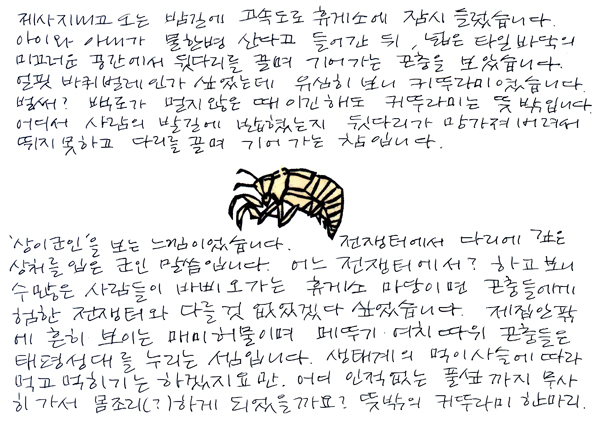 제사지내고 오는 밤길에 고속도로 휴게소에 잠시 들렀습니다.
아이와 아내가 물한병 산다고 들어간 뒤, 넓은 타일바닥의
미끄러운 공간에서 뒷다리를 끌며 기어가는 곤충을 보았습니다.
얼핏 바퀴벌레인가 싶었는데 유심히 보니 귀뚜라미였습니다.
벌써? 백로가 멀지않은 때이긴해도 귀뚜라미는 뜻밖입니다.
어디서 사람의 발길에 밟혔는지 뒷다리가 망가져버려서
뛰지못하고 다리를 끌며 기어가는 참입니다.
'상이군인'을 보는 느낌이었습니다. 전쟁터에서 다리에 깊은
상처를 입은 군인 말씀입니다. 어느 전쟁터에서? 하고보니
수많은 사람들이 바삐 오가는 휴게소 마당이면 곤충들에게
험한 전쟁터와 다를것 없었겠다 싶었습니다. 제집안팎
에 흔히 보이는 매미허물이며 메뚜기·여치따위 곤충들은
태평성대를 누리는 셈입니다. 생태계의 먹이사슬에 따라
먹고 먹히기는 하겠지요만. 어디 인적없는 풀섶까지 무사
히 가서 몸조리(?)하게 되었을까요? 뜻밖의 귀뚜라미 한마리.